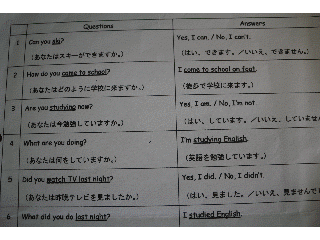 Questions
Answers
1
Can you ski?
Yes, I can. / No, I can't.
(あなたはスキーができますか。)
(はい、できます。／いいえ、できません。)
2
How do you come to school?
I come to school on foot.
(あなたはどのように学校に来ますか。)
(徒歩で学校に来ます。)
3
Are you studying now?
Yes, I am. / No, I'm not.
(あなたは今勉強していますか。)
(はい、しています。／いいえ、していません
4
What are you doing?
I'm studying English.
(あなたは何をしていますか。)
(英語を勉強しています。)
5
Did you watch TV last night?
Yes, I did. / No, I didn't.
(あなたは昨晩テレビを見ましたか。)
(はい、見ました。／いいえ、見ませんで
6
What did you do last night?
I studied English.